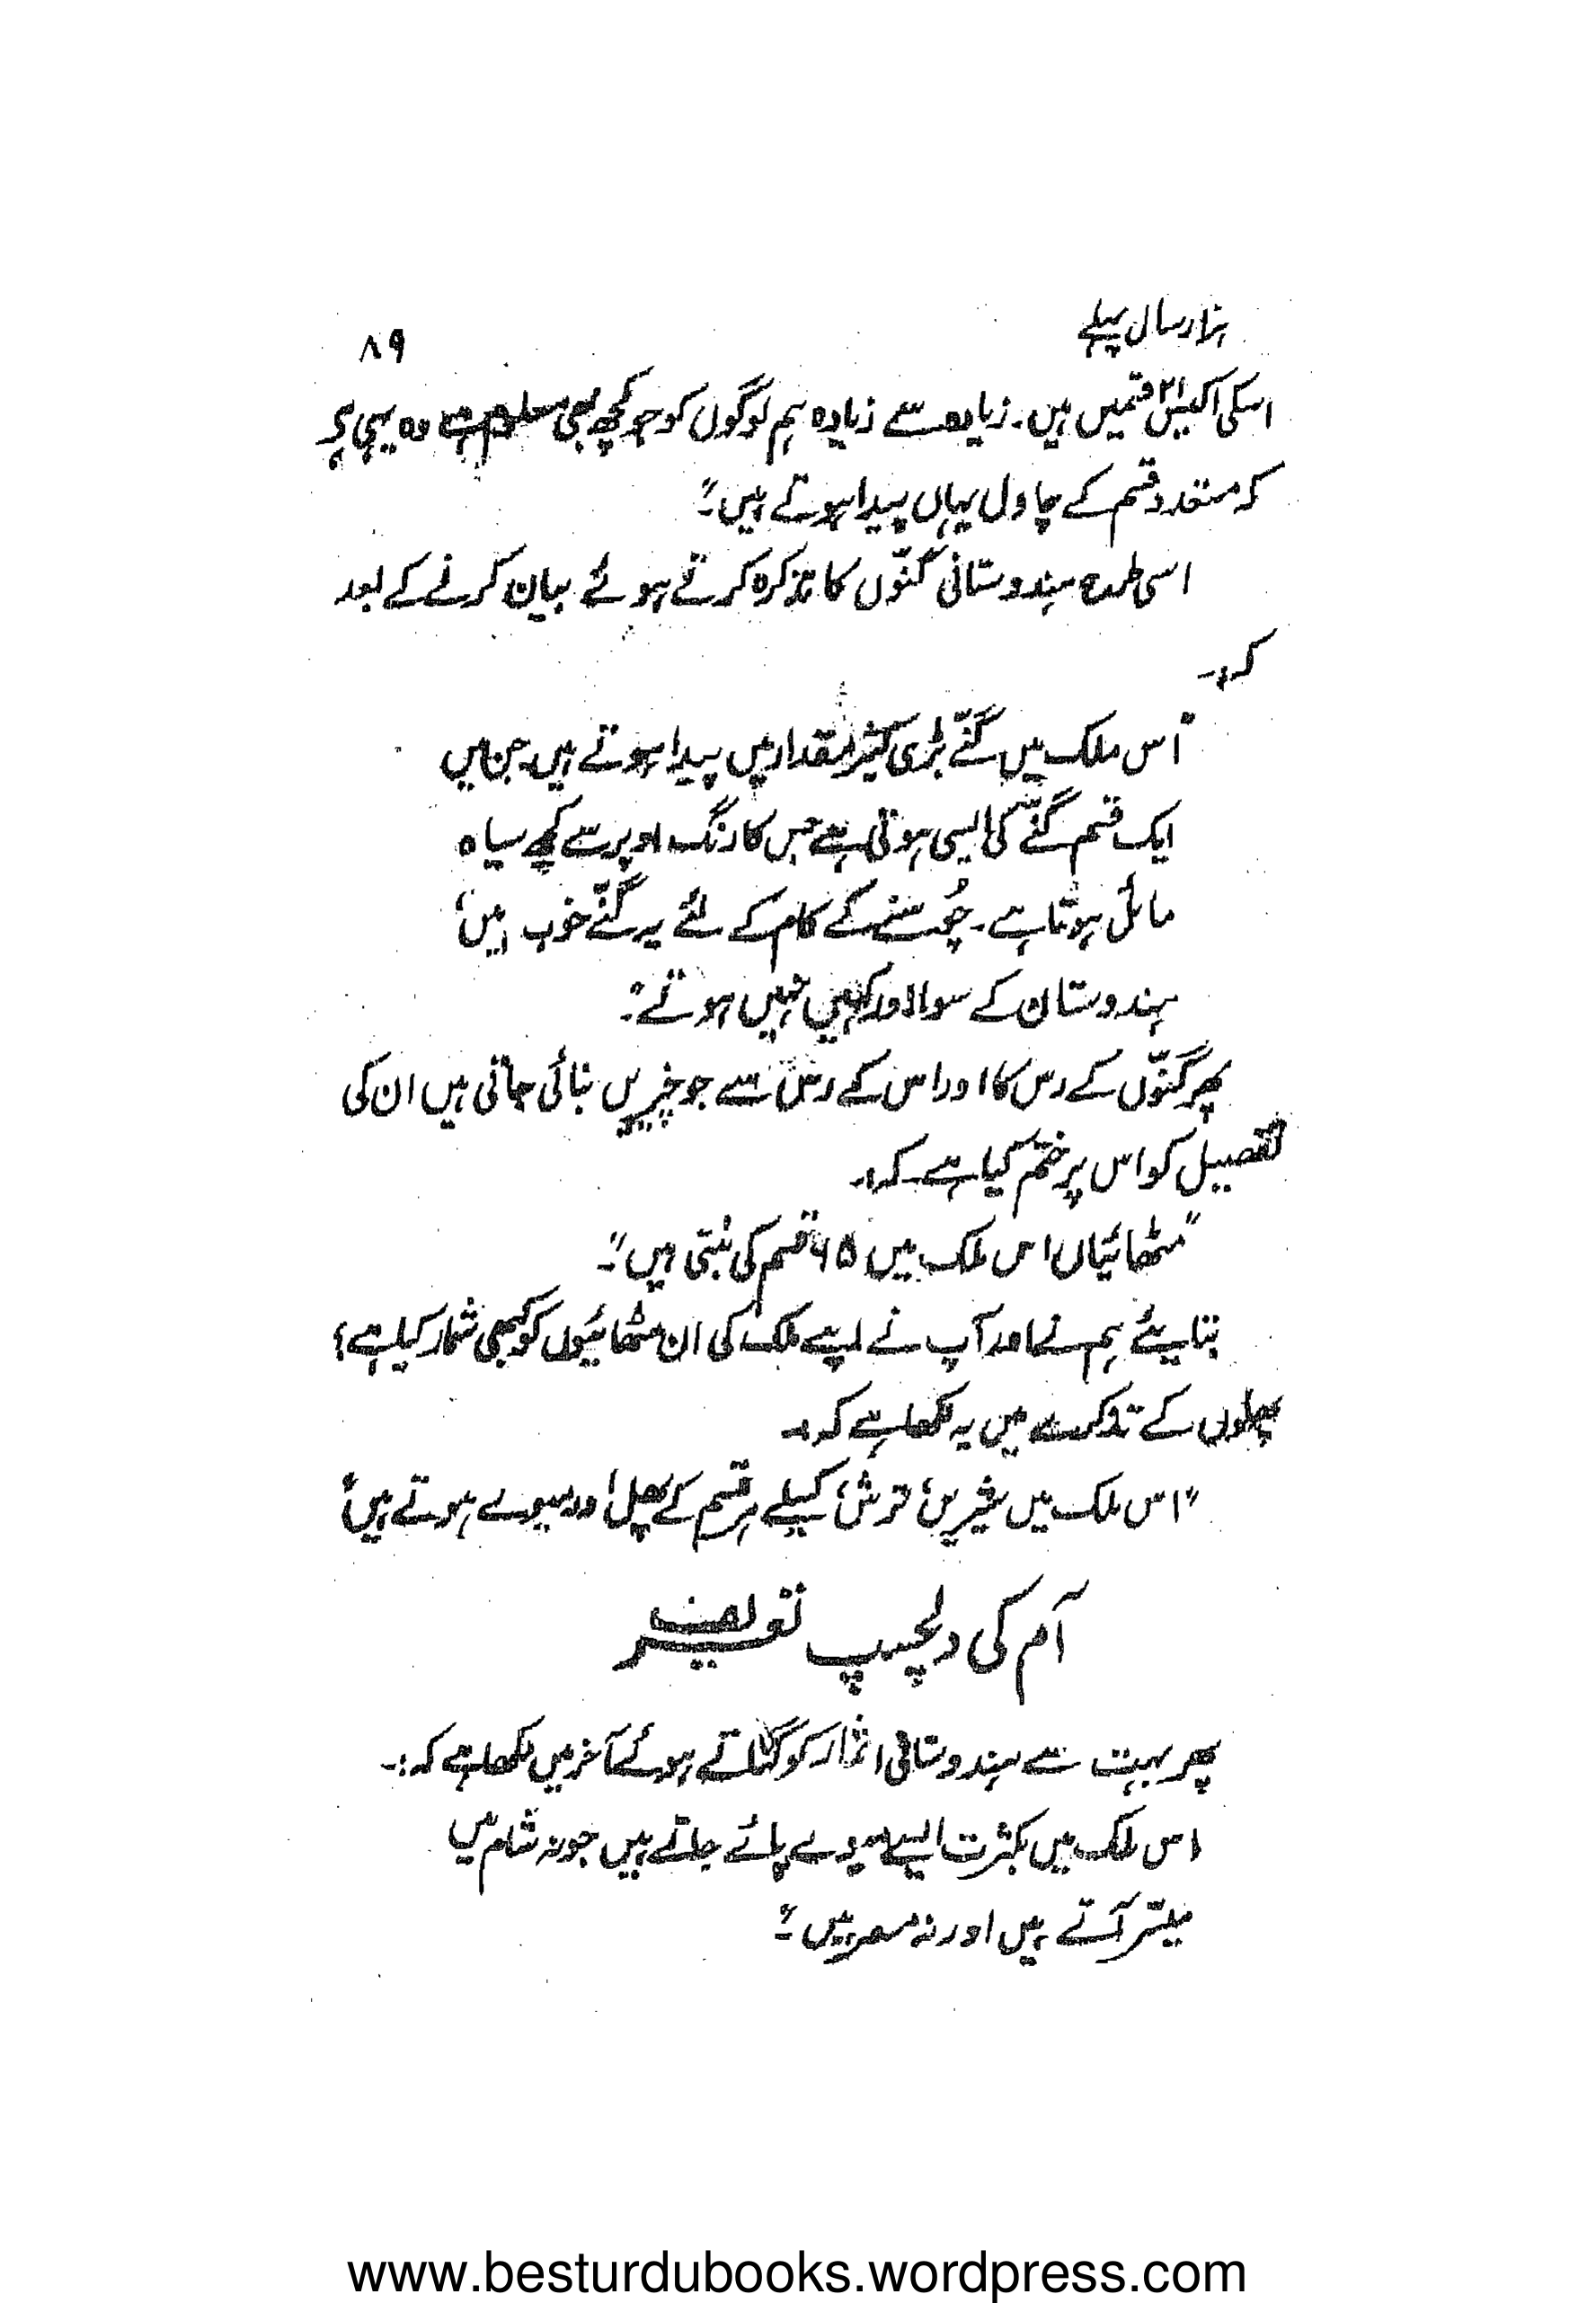 ہزار سال پہلے
۸۹
اسکی اکیس ۲۱ قسمیں ہیں۔ زیادہ سے زیادہ ہم لوگوں کو جو کچھ بھی معلوم ہے وہ یہی ہے
کہ متعدد قسم کے چاول یہاں پیدا ہوتے ہیں"۔
اسی طرح ہندوستانی گنّوں کا تذکرہ کرتے ہوئے بیان کرنے کے بعد
کہ:۔
"اس ملک میں گنّے بڑی کثیر مقدار میں پیدا ہوتے ہیں جن میں
ایک قسم گنّے کی ایسی ہوتی ہے جس کا رنگ اوپر سے کچھ سیاہ
مائل ہوتا ہے۔ چُوسنے کے کام کے لئے یہ گنّے خوب ہیں،
ہندوستان کے سوا اور کہیں نہیں ہوتے"۔
پھر گنّوں کے رس کا اور اس کے رس سے جو چیزیں بنائی جاتی ہیں ان کی
تفصیل کو اس پر ختم کیا ہے۔ کہ:۔
"مٹھائیاں اس ملک میں ۶۵ قسم کی بنتی ہیں"۔
بتایئے ہم نے اور آپ نے اپنے ملک کی ان مٹھائیوں کو کبھی شمار کیا ہے؟
پھلوں کے تذکرے میں یہ لکھا ہے کہ:۔
"اس ملک میں شیریں، ترش، کسیلے ہر قسم کے پھل اور میوے ہوتے ہیں"
آم کی دلچسپ تعریف
پھر بہت سے ہندوستانی اثمار کو گناتے ہوئے آخر میں لکھا ہے کہ:۔
اس ملک میں بکثرت ایسے میوے پائے جاتے ہیں جو نہ شام میں
میسّر آتے ہیں اور نہ مصر میں"۔
www.besturdubooks.wordpress.com